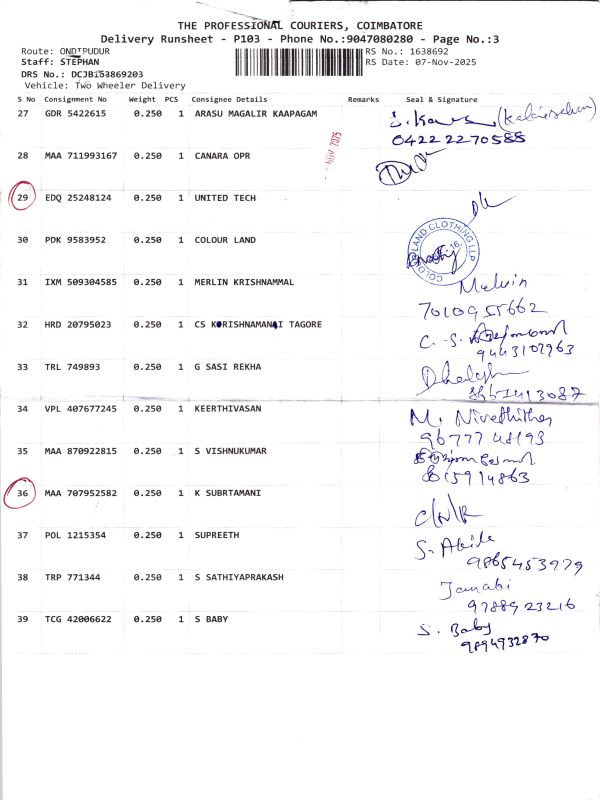 THE PROFESSIONAL COURIERS, COIMBATORE
Delivery Runsheet - P103 - Phone No.:9047080280 - Page No.:3
Route: ONDIPUDUR RS No.: 1638692
Staff: STEPHAN RS Date: 07-Nov-2025
DRS No.: DCJB153869203
Vehicle: Two Wheeler Delivery
S No Consignment No Weight PCS Consignee Details Remarks Seal & Signature
27 GDR 5422615 0.250 1 ARASU MAGALIR KAAPAGAM
0422 2270588
28 MAA 711993167 0.250 1 CANARA OPR
29 EDQ 25248124 0.250 1 UNITED TECH
30 PDK 9583952 0.250 1 COLOUR LAND
COLOUR LAND CLOTHING LLP
31 IXM 509304585 1 0.250 MERLIN KRISHNAMMAL Melvin
7010955662
32 HRD 20795023 0.250 1 CS KORISHNAMANAI TAGORE
9443102963
33 TRL 749893 0.250 1 G SASI REKHA
34 VPL 407677245 0.250 1 KEERTHIVASAN M. Nivethitha
96777 48193
35 MAA 870922815 0.250 1 S VISHNUKUMAR
36 MAA 707952582 0.250 1 K SUBRTAMANI
37 POL 1215354 0.250 1 SUPREETH
9865453979
38 TRP 771344 0.250 1 S SATHIYAPRAKASH Janabi
9788923216
39 TCG 42006622 0.250 1 S BABY S. Baby
9894932870